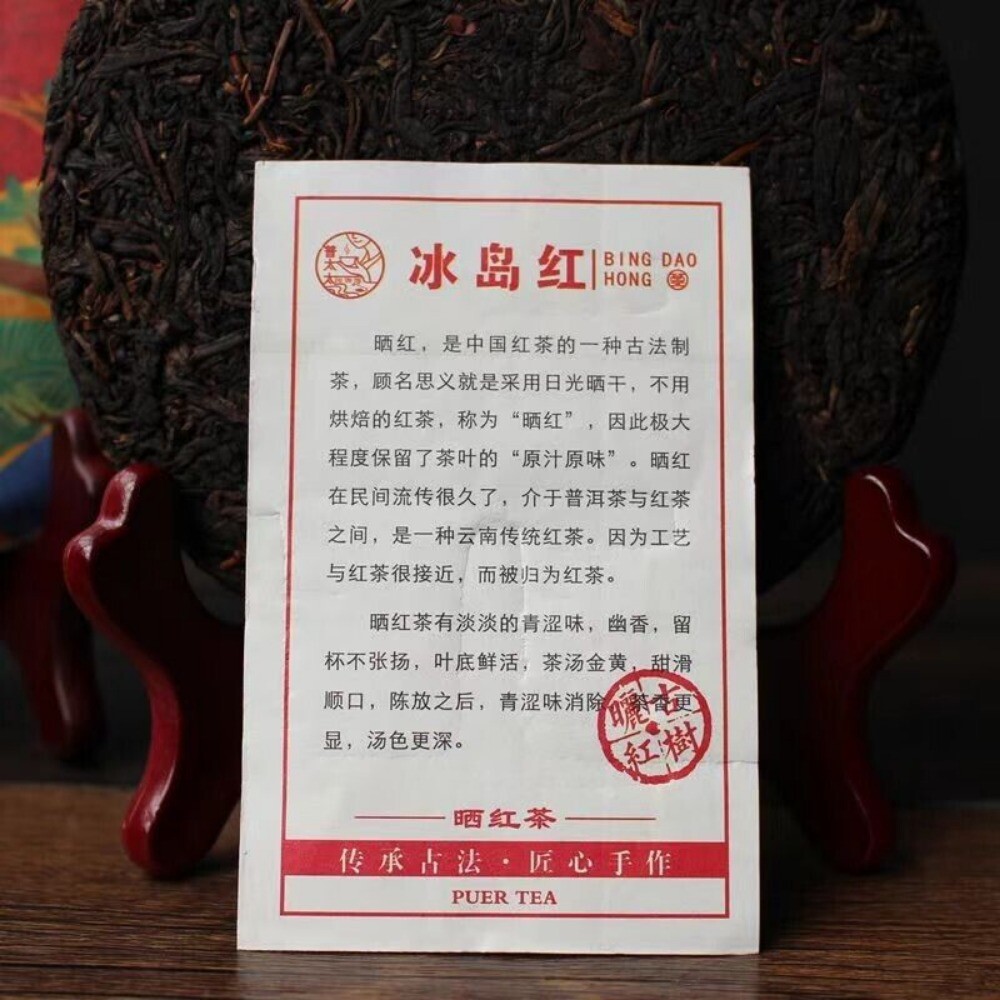 普太太
冰岛红
BING DAO
HONG
晒红，是中国红茶的一种古法制
茶，顾名思义就是采用日光晒干，不用
烘焙的红茶，称为“晒红”，因此极大
程度保留了茶叶的“原汁原味”。晒红
在民间流传很久了，介于普洱茶与红茶
之间，是一种云南传统红茶。因为工艺
与红茶很接近，而被归为红茶。
晒红茶有淡淡的青涩味，幽香，留
杯不张扬，叶底鲜活，茶汤金黄，甜滑
顺口，陈放之后，青涩味消除，茶香更
显，汤色更深。
古樹
曬紅
晒红茶
传承古法·匠心手作
PUER TEA